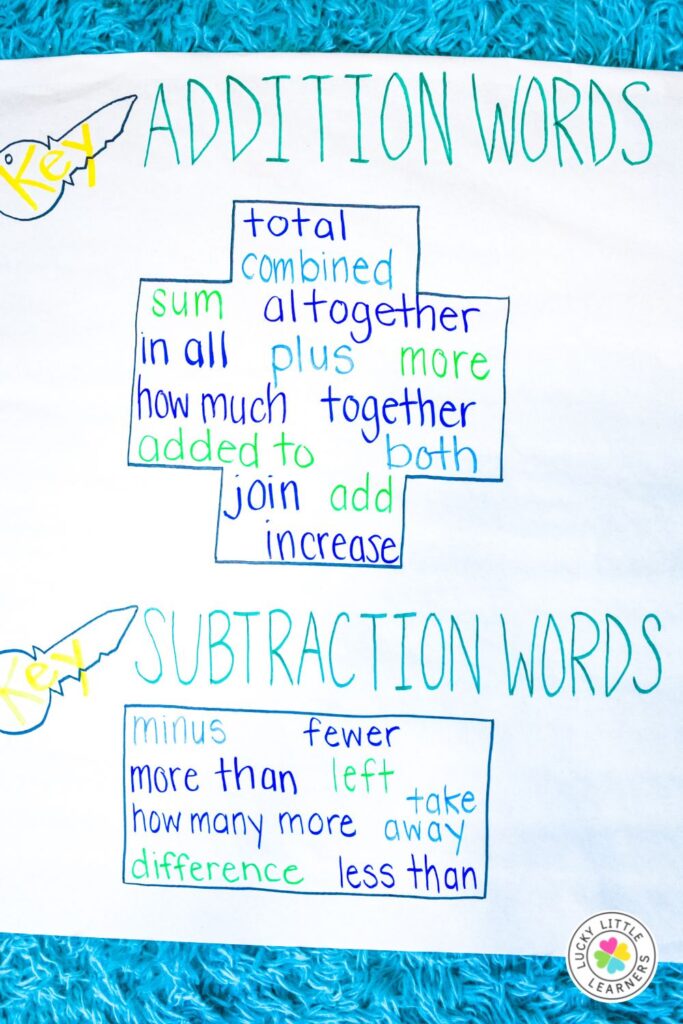 Key ADDITION WORDS
total
combined
sum altogether
in all plus more
how much together
added to both
join add
increase
Key SUBTRACTION WORDS
minus fewer
more than left
how many more take away
difference less than
LUCKY LITTLE LEARNERS